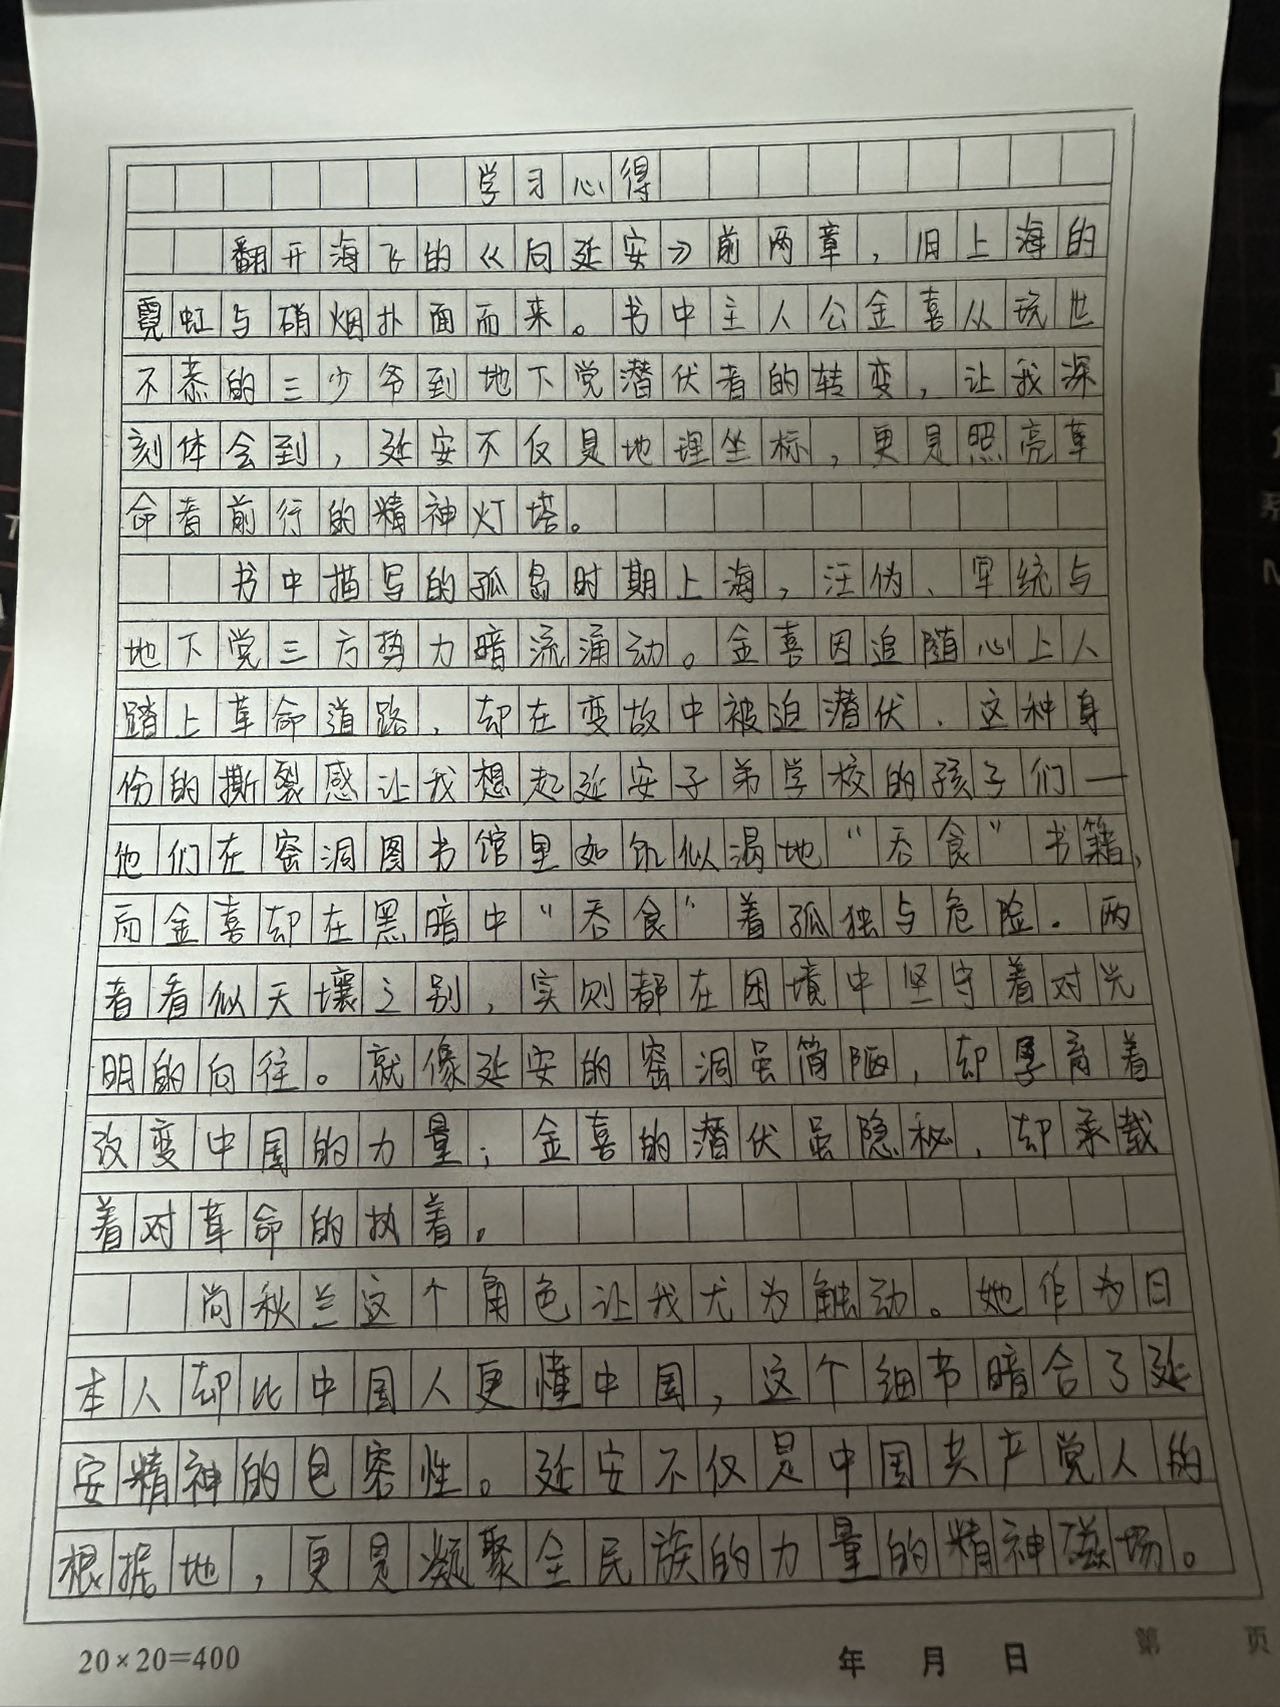 学习心得
翻开海飞的《向延安》前两章，旧上海的
霓虹与硝烟扑面而来。书中主人公金喜从玩世
不恭的三少爷到地下党潜伏者的转变，让我深
刻体会到，延安不仅是地理坐标，更是照亮革
命者前行的精神灯塔。
书中描写的孤岛时期上海，汪伪、军统与
地下党三方势力暗流涌动。金喜因追随心上人
踏上革命道路，却在变故中被迫潜伏，这种身
份的撕裂感让我想起延安子弟学校的孩子们—
他们在窑洞图书馆里如饥似渴地“吞食”书籍，
而金喜却在黑暗中“吞食”着孤独与危险。两
者看似天壤之别，实则都在困境中坚守着对光
明的向往。就像延安的窑洞虽简陋，却孕育着
改变中国的力量；金喜的潜伏虽隐秘，却承载
着对革命的执着。
尚秋兰这个角色让我尤为触动。她作为日
本人却比中国人更懂中国，这个细节暗合了延
安精神的包容性。延安不仅是中国共产党人的
根据地，更是凝聚全民族的力量的精神磁场。
20×20=400
年 月 日
第 页